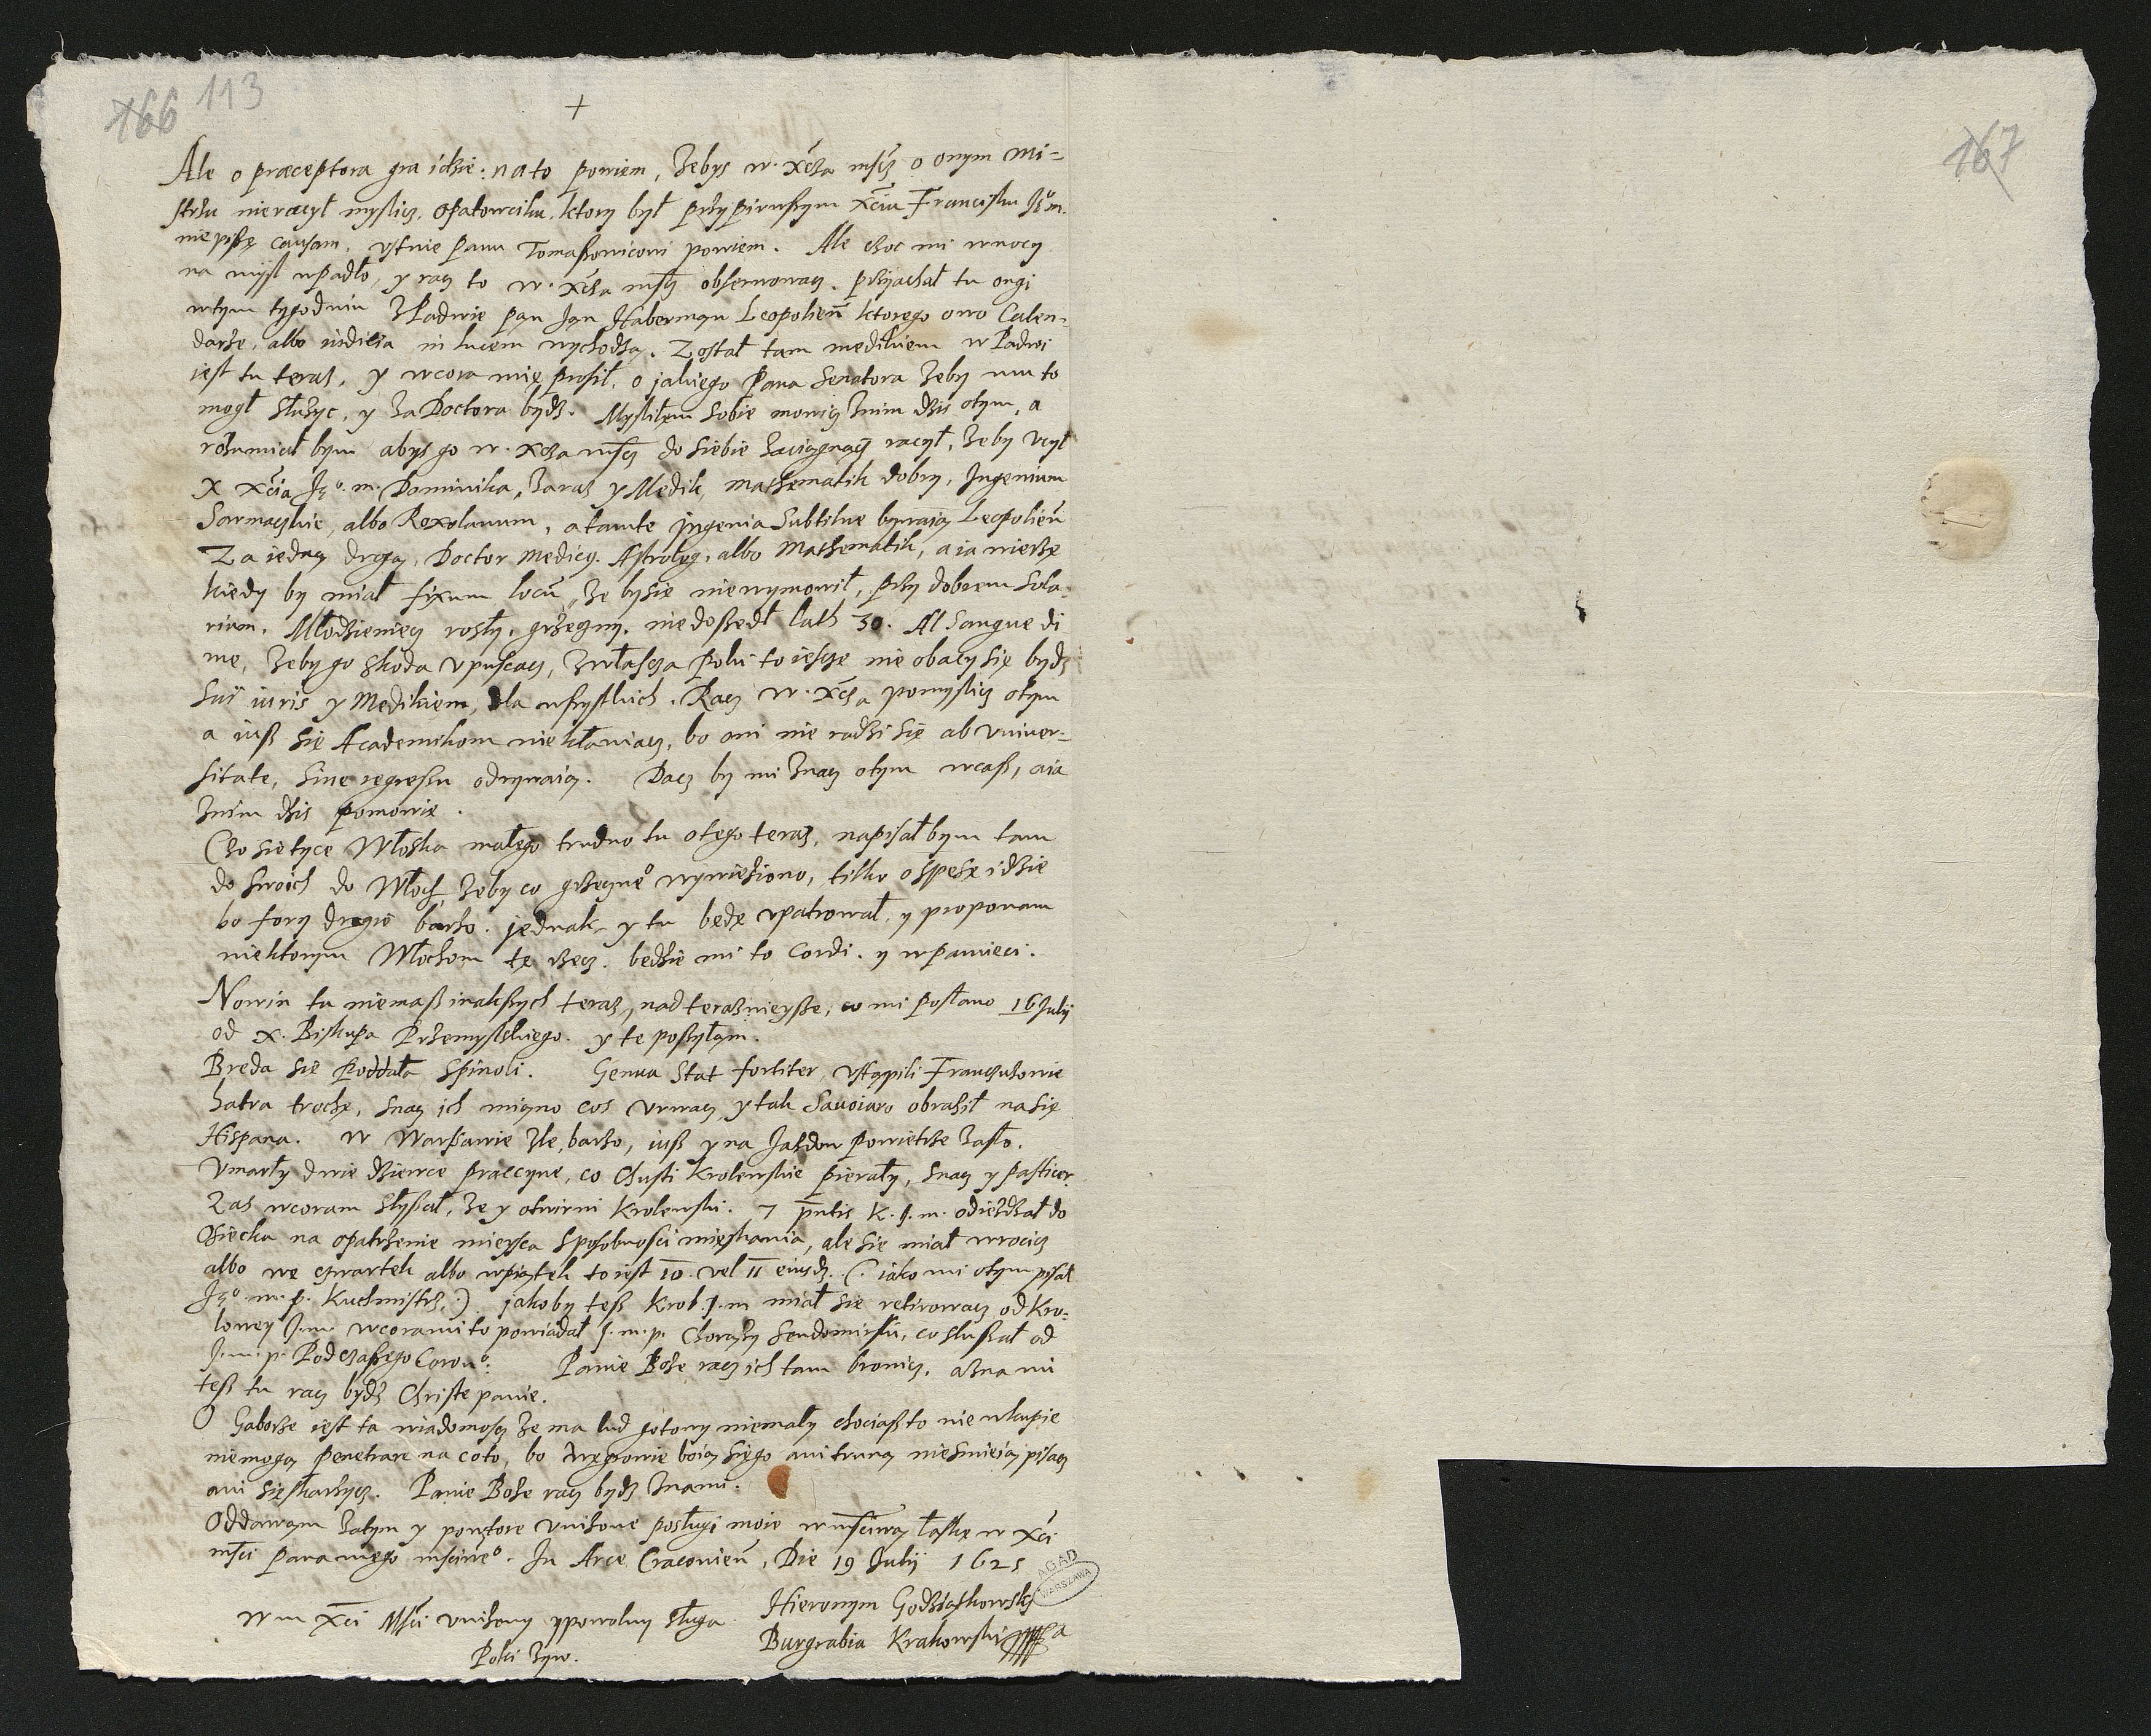 166 113
167
+
Ale o præceptora gra idzie: na to powiem, Zebys w. xcza mscz o onym Mi-
strzu nieraczył myslicz, Opatowciku, ktory był przy pirwszym Xciu Francisku Jo m.
niepiszę causam, ustnie panu Tomaszowicowi powiem. Ale choc mi wnocy
na mysl wpadło, y racz to w. xcza mscz obserwowacz. przyiachał tu ongi
wtym tygodniu z Padwie pan Jan Haberman Leopolien ktorego owo Calen-
darze, albo iudicia in lucem wychodzą. Został tam medikiem w Padwi
iest tu teraz, y wcora mię prosił, o jakiego Pana Senatora zeby mu to
mogł słuzyc, y za Doctora bydz. Mysliłem sobie mowicz znim dzis otym, a
rozumiał bym abys go w. xcza mscz do siebie zaciągnącz raczył, zeby uczył
X Xcia Jgo. m. Dominika, zaraz y Medik, mathematik dobry, Ingenium
Sarmackie, albo Roxolanum, a tamte ingenia subtilne bywaią Leopolien
Za iedną drogą, Doctor medicę. Astrolog, albo Mathematik, a ia wierzę
kiedy by miał fixum locum, ze bysie niewymowił, przy dobrem sola-
rium. Młodzieniecz rosły, grzeczny, niedoszedł lath 30. Al sangue di
me, zeby go skoda upuscacz, zwłascza poki to iescze nie obaczy się bydz
sui iuris y Medikiem, dla wszystkich. Racz w. xcza pomyslicz otym
a iusz się Academikom niekłaniacz, bo oni nie radzi się ab univer-
sitate, sine regressu odrywaią. Dacz by mi znacz otym wcasz, a ia
znim dzis pomowię.
Czo sietyce Włoska małego trudno tu otego teraz, napisał bym tam
do swoich do Włoch, zeby co grzeczne° wywieziono, tilko o spesę idzie
bo fory drogie barzo. jednak y tu będę upatrował, y proponam
niektorym Włochom tę rzecz. będzie mi to Cordi. y wpamieci.
Nowin tu niemasz inakszych teraz, nad teraznieysze, co mi posłano 16 Julij
od X. Biskupa Przemyslskiego. y te posyłam.
Breda się poddała Spinoli. Genua stat fortiter, ustąpili Francuzowie
zatra trochę, snacz ich miano cos urwacz, y tak Savoiaro obraził nasię
Hispana. W Warszawie zle, barzo, iusz y na Jazdow powietrze zaszło.
Umarły dwie dziewce praeczyne, co Chusti Krolewskie pierały, snacz y pasticer.
Zas wcoram słyszał, ze y otwirni Krolewski. 7 pntis K. J. m. odiezdzał do
Osiecka na opatrzenie mieysca sposobnosci mięskania, ale się miał wrocicz
albo we czwartek albo wpiątek to iest 10. vel 11 eiusdz. (. iako mi otym pisał
Jgo. m. p. Kuchmistrz.). jakoby tesz Krol. J. m miał sie retirowacz od Kro-
lowey J.m. wcoramito powiadał J. m. p. Chorąży Sendomirski, co słuszał od
J. m. p. Podczaszego Coron°: Panie Boze racz ich tam bronicz, a zna mi
tesz tu racz bydz Christe panie.
O Gaborze iest ta wiadomoscz ze ma lud gotowy niemały chociasz to nie wkupie
niemogą penetrare na co to, bo Węgrowie boią sięgo ani trwną niesmieią pisacz
ani sięskarzycz. Panie Boze racz bydz znami.
Oddawam zatym y powtore unizone posługi moie w msciwą łaskę w xci
msci pana mego msciwe°. In Arce Cracovien, Die 19 Julij 1625
w m Xci Msci unizony y powolny sługa
Poki zyw.
Hieronym Godziatkowsky
Burgrabia Krakowski
AGAD
WARSZAWA